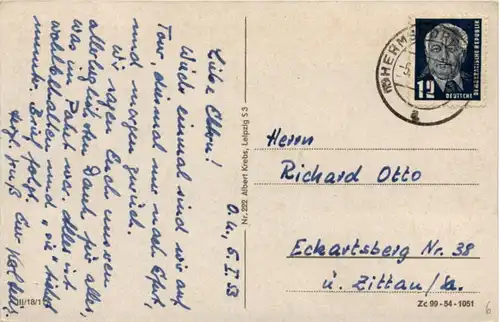 O.u., 5.I.53
Liebe Eltern!
Wieder einmal sind wir auf
Tour, diesmal nur nach Erfurt,
und morgen zurück.
Wir sagen Euch unseren
allerherzlichsten Dank für alles,
was im Paket war. Alles ist
wohlbehalten und
Brief folgt.
Herzl. Gruß Eure
III/18/1
Nr. 222 Albert Krebs, Leipzig S 3
HERMS
12
DEUTSCHE
DEMOKRATISCHE REPUBLIK
a
Herrn
Richard Otto
Eckartsberg Nr. 38
ü. Zittau/Sa.
Zc 99-54-1051
6